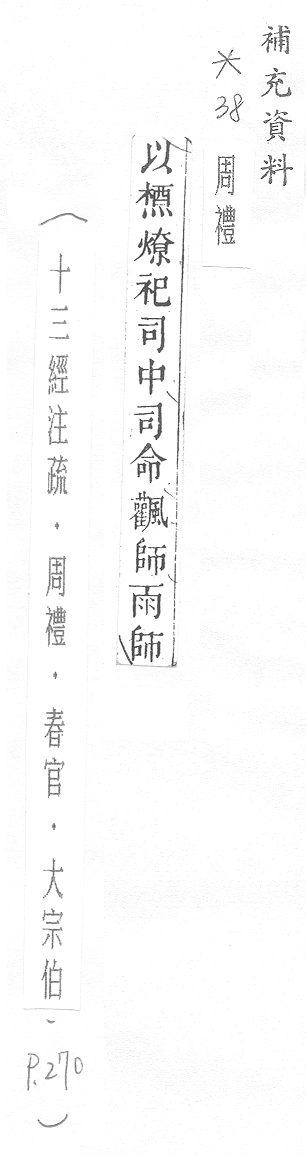 補充資料
*38 周禮
以槱燎祀司中司命飌師雨師
（十三經注疏．周禮．春官．大宗伯、P.270）